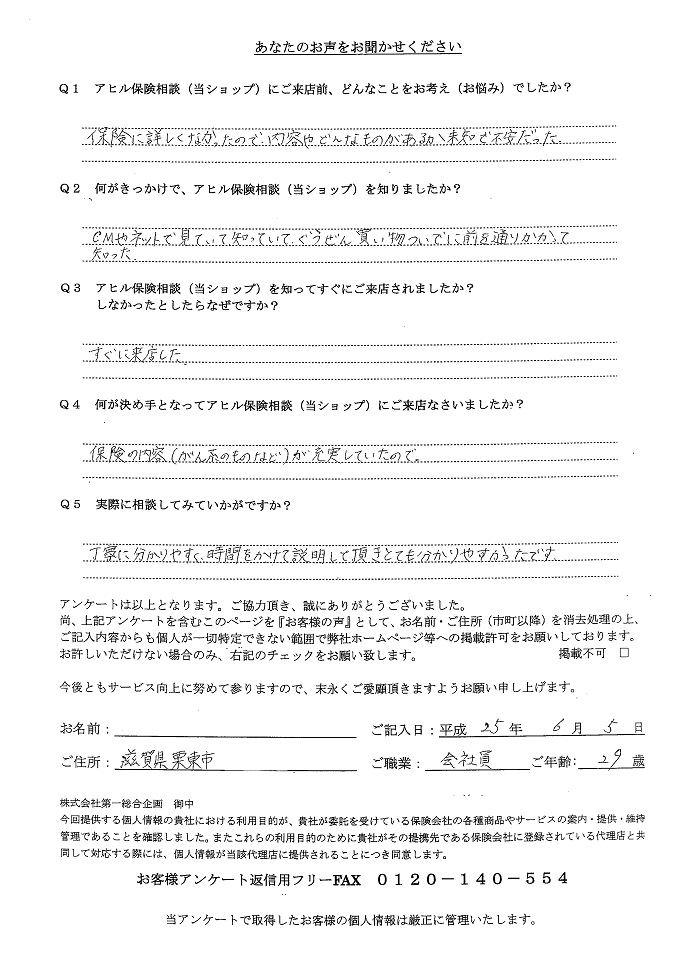 あなたのお声をお聞かせください
Q1 アヒル保険相談（当ショップ）にご来店前、どんなことをお考え（お悩み）でしたか？
保険に詳しくなかったので、内容やどんなものがあるか未知で不安だった。
Q2 何がきっかけで、アヒル保険相談（当ショップ）を知りましたか？
CMやネットで見ていて知っていて、ぐうぜん買い物ついでに前を通りかかって
知った。
Q3 アヒル保険相談（当ショップ）を知ってすぐにご来店されましたか？
しなかったとしたらなぜですか？
すぐに来店した。
Q4 何が決め手となってアヒル保険相談（当ショップ）にご来店なさいましたか？
保険の内容（がん系のものなど）が充実していたので。
Q5 実際に相談してみていかがですか？
丁寧に分かりやすく、時間をかけて説明して頂きとても分かりやすかったです。
アンケートは以上となります。ご協力頂き、誠にありがとうございました。
尚、上記アンケートを含むこのページを『お客様の声』として、お名前・ご住所（市町以降）を消去処理の上、
ご記入内容からも個人が一切特定できない範囲で弊社ホームページ等への掲載許可をお願いしております。
お許しいただけない場合のみ、右記のチェックをお願い致します。 掲載不可 □
今後ともサービス向上に努めて参りますので、末永くご愛顧頂きますようお願い申し上げます。
お名前： ご記入日：平成 25 年 6 月 5 日
ご住所： 滋賀県栗東市 ご職業： 会社員 ご年齢： 29 歳
株式会社第一総合企画 御中
今回提供する個人情報の貴社における利用目的が、貴社が委託を受けている保険会社の各種商品やサービスの案内・提供・維持
管理であることを確認しました。またこれらの利用目的のために貴社がその提携先である保険会社に登録されている代理店と共
同して対応する際には、個人情報が当該代理店に提供されることにつき同意します。
お客様アンケート返信用フリーFAX 0120－140－554
当アンケートで取得したお客様の個人情報は厳正に管理いたします。